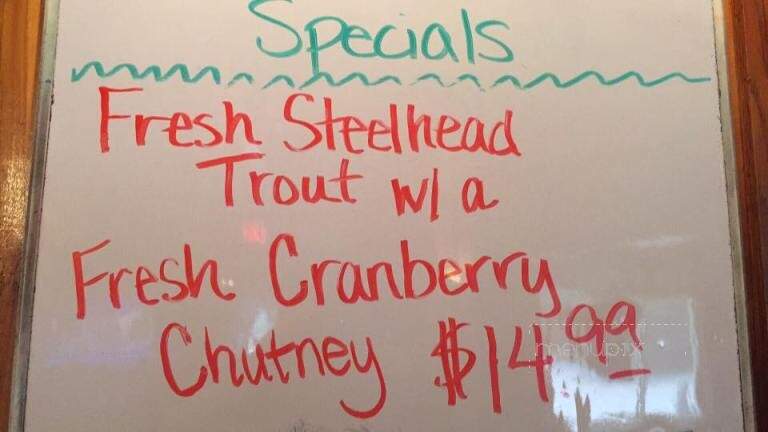 Specials
Fresh Steelhead
Trout w/ a
Fresh Cranberry
Chutney $14.99
menupix